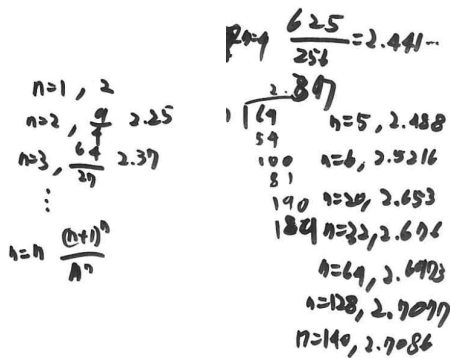 n=1, 2
n=2, 9/4 2.25
n=3, 64/27 2.37
⋮
n=n (n+1)^n/n^n
n=4 625/256=2.441…
64
54
100
81
190
189
n=5, 2.488
n=6, 2.5216
n=20, 2.653
n=32, 2.676
n=64, 2.6973
n=128, 2.7077
n=140, 2.7086